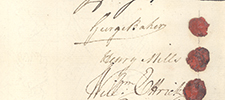 George Baker
Henry Mills
Will: Ettrick